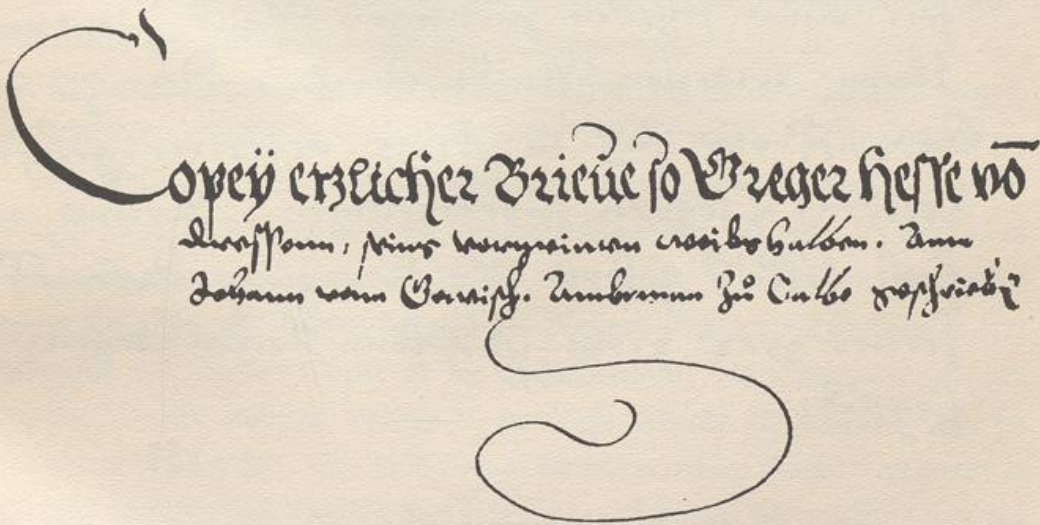 Copeÿ etzlicher Brieue so Greger Hesse vō
dressenn, seins vorgeinten weibs halben. Ann
Johann vom Gewisch. Ambtman Zů Calbe geschriebñ